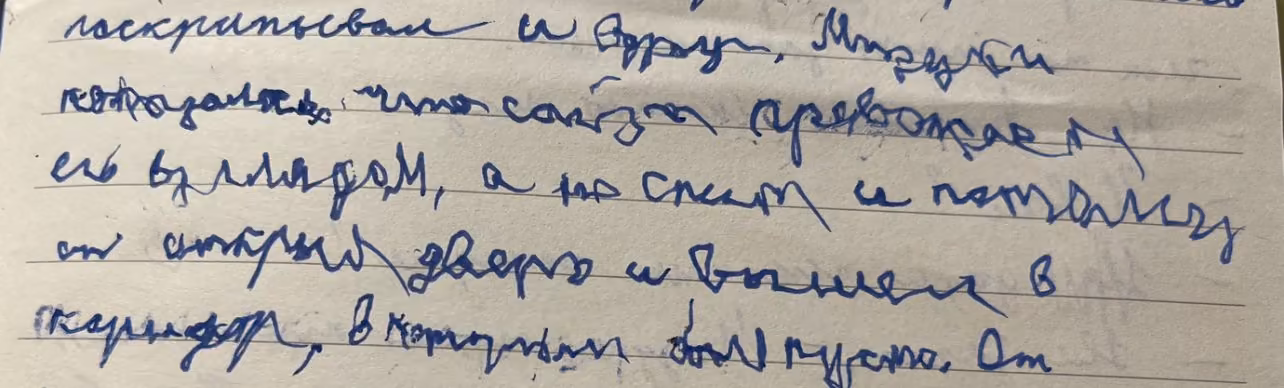 поскрипывал и вдруг, Мизуки
показалось, что сайга провожает
его взглядом, а не спит и потому
он открыл дверь и вышел в
коридор, в котором был пусто. Он